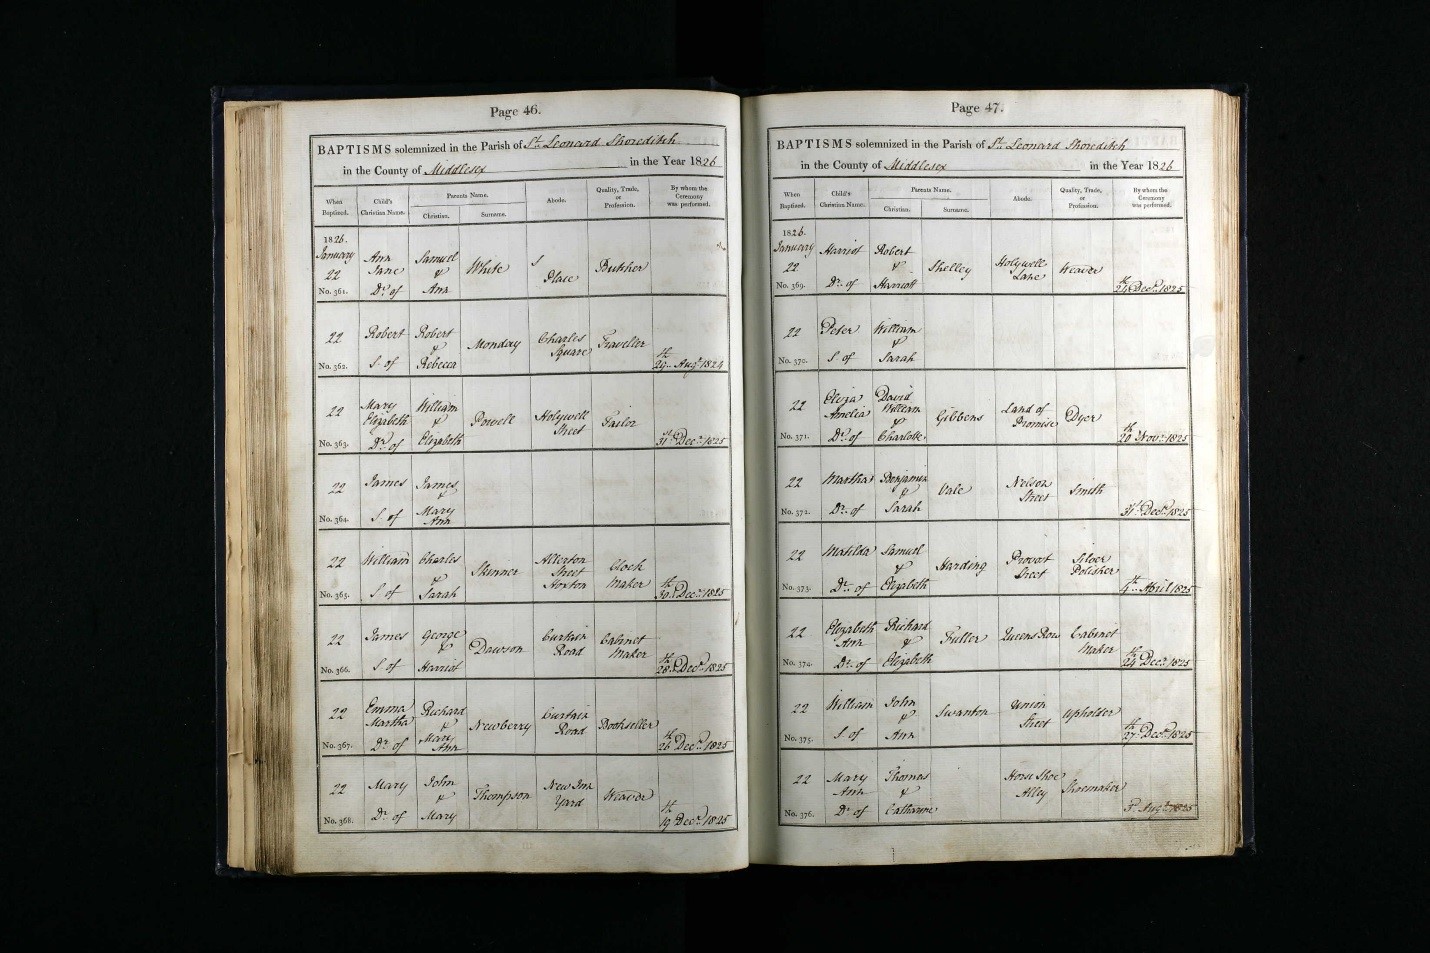 Page 46.
BAPTISMS solemnized in the Parish of St. Leonard Shoreditch
in the County of Middlesex in the Year 1826
When Baptized. Child's Christian Name. Parents Name. Christian. Surname. Abode. Quality, Trade, or Profession. By whom the Ceremony was performed.
1826.
January
22
No. 361.
Ann
Jane
Dr. of
Samuel
&
Ann
White
Place
Butcher
22
No. 362.
Robert
S. of
Robert
&
Rebecca
Monday
Charles
Square
Traveller
29th Augt 1824
22
No. 363.
Mary
Elizabeth
Dr. of
William
&
Elizabeth
Powell
Holywell
Street
Tailor
31st Decr. 1825
22
No. 364.
James
S. of
James
&
Mary
Ann
22
No. 365.
William
S. of
Charles
&
Sarah
Skinner
Allerton
Street
Hoxton
Clock
Maker
30th Decr. 1825
22
No. 366.
James
S. of
George
&
Harriot
Dawson
Curtain
Road
Cabinet
Maker
28th Decr. 1825
22
No. 367.
Emma
Martha
Dr. of
Richard
&
Mary
Ann
Newberry
Curtain
Road
Bookseller
26th Decr. 1825
22
No. 368.
Mary
Dr. of
John
&
Mary
Thompson
New Inn
Yard
Weaver
19th Decr. 1825
Page 47.
BAPTISMS solemnized in the Parish of St. Leonard Shoreditch
in the County of Middlesex in the Year 1826
When Baptized. Child's Christian Name. Parents Name. Christian. Surname. Abode. Quality, Trade, or Profession. By whom the Ceremony was performed.
1826.
January
22
No. 369.
Harriot
Dr. of
Robert
&
Harriott
Shelley
Holywell
Lane
Weaver
24th Decr. 1825
22
No. 370.
Peter
S. of
William
&
Sarah
22
No. 371.
Eliza
Amelia
Dr. of
David
William
&
Charlotte
Gibbens
Land of
Promise
Dyer
20th Novr. 1825
22
No. 372.
Martha
Dr. of
Benjamin
&
Sarah
Vale
Nelson
Street
Smith
31st Decr. 1825
22
No. 373.
Matilda
Dr. of
Samuel
&
Elizabeth
Harding
Provost
Street
Silver
Polisher
4th April 1825
22
No. 374.
Elizabeth
Ann
Dr. of
Richard
&
Elizabeth
Fuller
Queens Row
Cabinet
Maker
24th Decr. 1825
22
No. 375.
William
S. of
John
&
Ann
Swanton
Union
Street
Upholder
27th Decr. 1825
22
No. 376.
Mary
Ann
Dr. of
Thomas
&
Catharine
Horse Shoe
Alley
Shoemaker
3d. Augt 1825